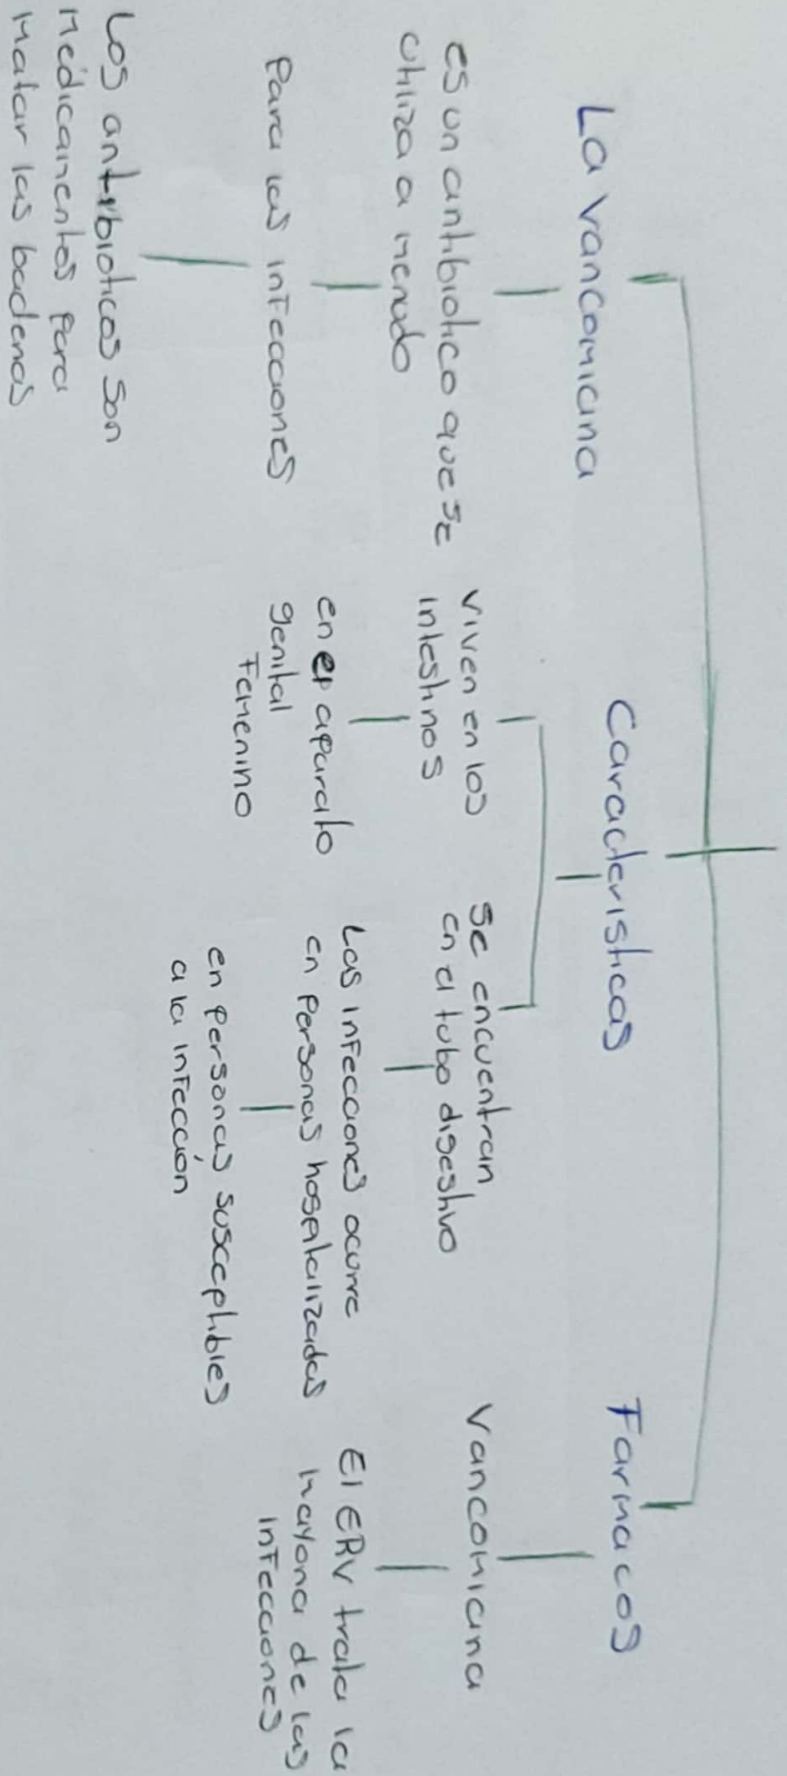 La vancomicina
es un antibiotico que se
utiliza a menudo
Para las infecciones
Los antibioticos son
medicamentos para
matar las bacterias
Caracteristicas
viven en los
intestinos
en el aparato
genital
Femenino
Se encuentran
en el tubo digestivo
Las infecciones ocurre
en personas hospitalizadas
en personas susceptibles
a la infección
Farmacos
Vancomicina
El ERV trata la
mayoria de las
infecciones